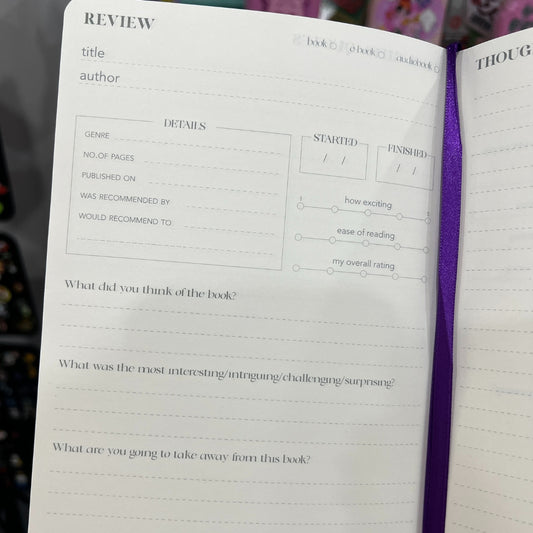 REVIEW
book e-book audiobook
title
author
DETAILS
GENRE
NO. OF PAGES
PUBLISHED ON
WAS RECOMMENDED BY
WOULD RECOMMEND TO
STARTED
/ /
FINISHED
/ /
how exciting
1 5
ease of reading
my overall rating
What did you think of the book?
What was the most interesting/intriguing/challenging/surprising?
What are you going to take away from this book?
THOUG